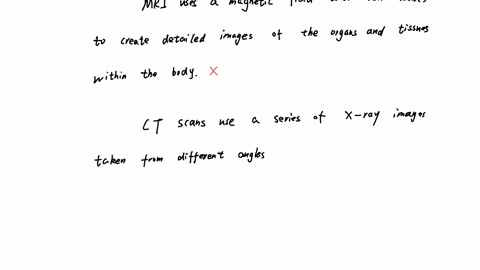 MRI uses a magnetic field
to create detailed images of the organs and tissues
within the body. ×
CT scans use a series of X-ray images
taken from different angles